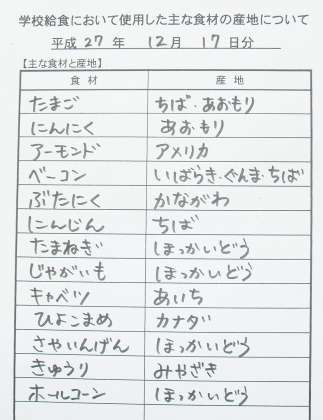 学校給食において使用した主な食材の産地について
平成27年 12月 17日分
【主な食材と産地】
食材 産地
たまご ちば・あおもり
にんにく あおもり
アーモンド アメリカ
ベーコン いばらき・ぐんま・ちば
ぶたにく かながわ
にんじん ちば
たまねぎ ほっかいどう
じゃがいも ほっかいどう
キャベツ あいち
ひよこまめ カナダ
さやいんげん ほっかいどう
きゅうり みやざき
ホールコーン ほっかいどう